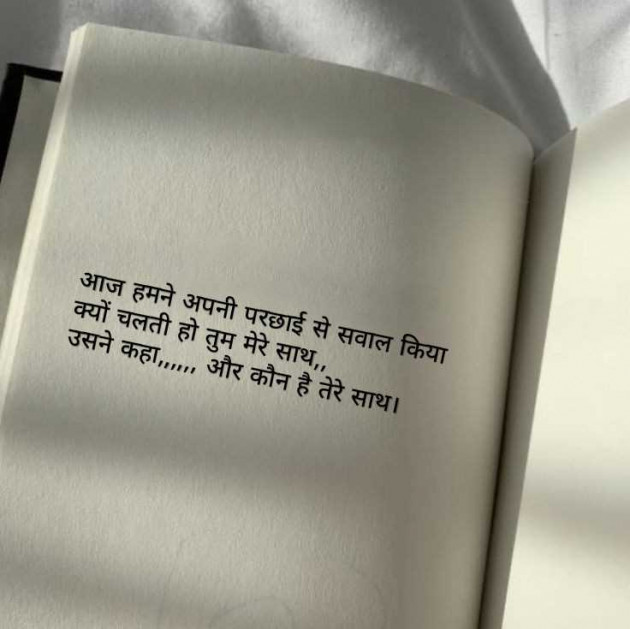 आज हमने अपनी परछाई से सवाल किया
क्यों चलती हो तुम मेरे साथ,,
उसने कहा,,,,,, और कौन है तेरे साथ।